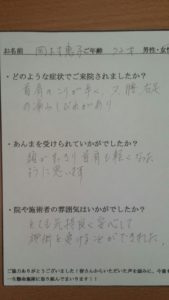 お名前 岡本恵子 ご年齢 男性・女性
・どのような症状でご来院されましたか？
首肩のこりが辛く、又腰、右足
の痛みしびれがあり
・あんまを受けられていかがでしたか？
頭がすっきり首肩も軽くなった
ように思います
・院や施術者の雰囲気はいかがでしたか？
とても気持良く安心して
施術を受けることができました。
ご協力ありがとうございました！皆さんからいただいた声を励みに、今後も
一生懸命施術に取り組んでまいります！！